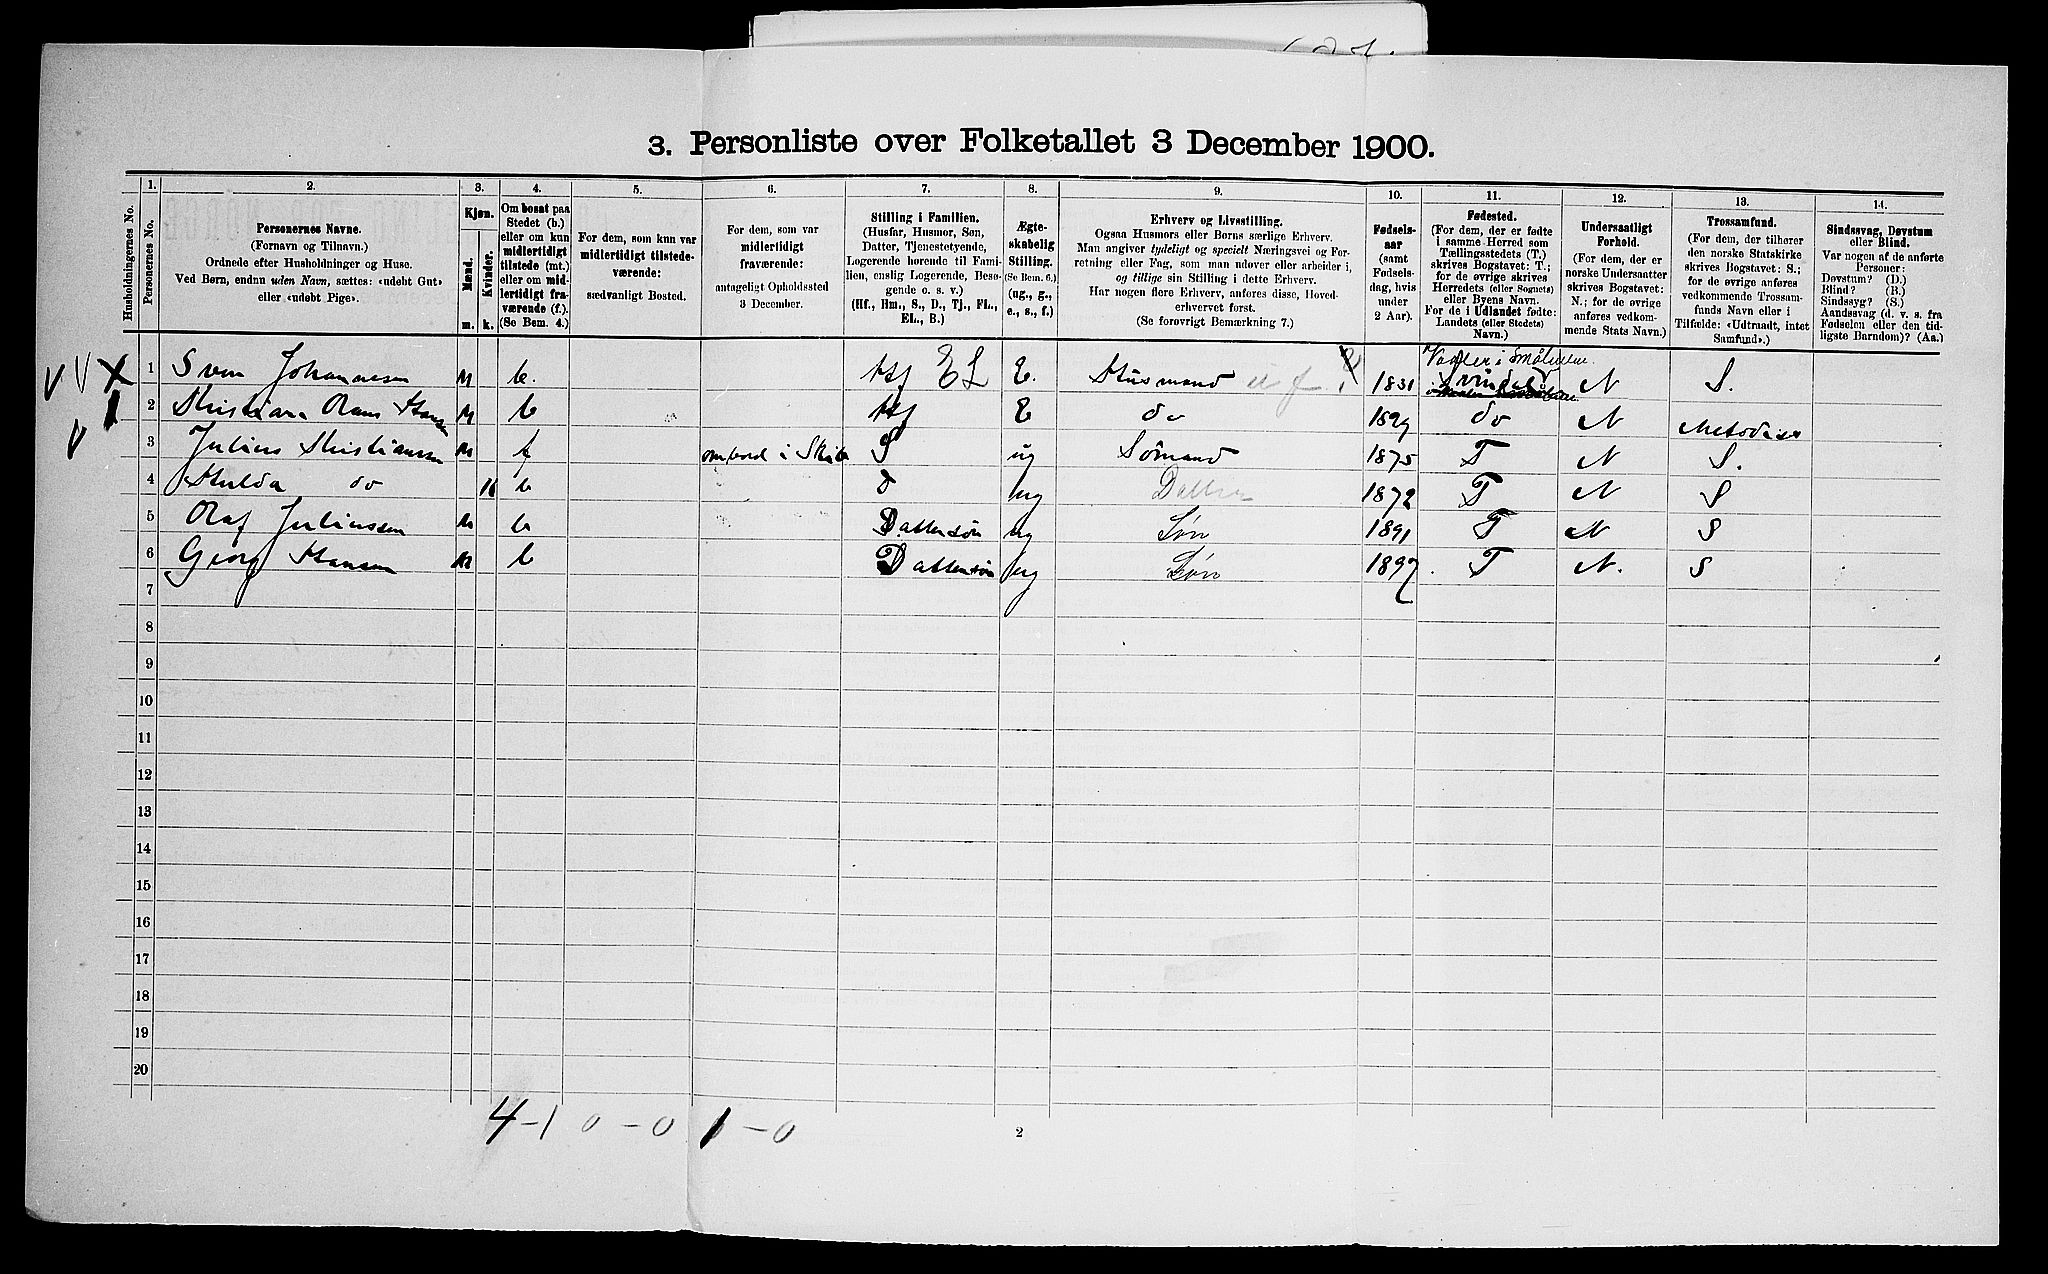 3. Personliste over Folketallet 3 December 1900.
Husholdningernes No.
1.
Personernes No.
2.
Personernes Navne.
(Fornavn og Tilnavn.)
Ordnede efter Husholdninger og Huse.
Ved Børn, endnu uden Navn, sættes: «udebt Gut»
eller «udebt Pige».
3.
Kjøn.
Mænd.
Kvinder.
m. k.
4.
Om bosat paa
Stedet (b.)
eller om kun
midlertidigt
tilstede (mt.)
eller om mid-
lertidigt fra-
værende (f.).
(Se Bem. 4.)
5.
For dem, som kun var
midlertidigt tilstede-
værende:
sædvanligt Bosted.
6.
For dem, som var
midlertidigt
fraværende:
antageligt Opholdssted
3 December.
7.
Stilling i Familien.
(Husfar, Husmor, Søn,
Datter, Tjenestetyende,
Logerende hørende til Fami-
lien, enslig Logerende, Besø-
gende o. s. v.)
(Hf., Hm., S., D., Tj., FL.,
EL., B.)
8.
Ægte-
skabelig
Stilling.
(Se Bem. 6.)
(ug., g.,
e., s., f.)
9.
Erhverv og Livsstilling.
Ogsaa Husmors eller Børns særlige Erhverv.
Man angiver tydeligt og specielt Næringsvei og For-
retning eller Fag, som man udøver eller arbeider i,
og tillige sin Stilling i dette Erhverv.
Har nogen flere Erhverv, anføres disse, Hoved-
erhvervet først.
(Se forøvrigt Bemærkning 7.)
10.
Fødsels-
aar
(samt
Fødsels-
dag, hvis
under
2 Aar).
11.
Fødested.
(For dem, der er fødte
i samme Herred som
Tællingsstedets (T.)
skrives Bogstavet: T.;
for de øvrige skrives
Herredets (eller Sognets)
eller Byens Navn.
For de i Udlandet fødte:
Landets (eller Stedets)
Navn.)
12.
Undersaatligt
Forhold.
(For dem, der er
norske Undersaatter
skrives Bogstavet:
N.; for de øvrige
anføres vedkom-
mende Stats Navn.)
13.
Trossamfund.
(For dem, der tilhører
den norske Statskirke
skrives Bogstavet: S.;
for de øvrige anføres
vedkommende Trossam-
funds Navn eller i
Tilfælde: «Udtraadt, intet
Samfund».)
14.
Sindssvag, Døvstum
eller Blind.
Var nogen af de anførte
Personer:
Døvstum? (D.)
Blind? (B.)
Sindssyg? (S.)
Aandssvag (d. v. s. fra
Fødselen eller den tid-
ligste Barndom)? (Aa.)
1 Sven Johannesen M b. Hf EL E. Husmand 1831 Vaaler i Smålenene N S.
2 Kristian Hansen M b Hf E do 1829 do N Metodist
3 Julius Kristianssen M f ombord i Skib S ug Sømand 1875 T N S.
4 Hulda do K b d ug Datter 1872 T N S
5 Olaf Juliussen M b Dattersøn ug Søn 1891 T N S
6 Georg Hansen M b Dattersøn ug Søn 1897. T N. S
7
8
9
10
11
12
13
14
15
16
17
18
19
20
4-1 0-0 1-0
2